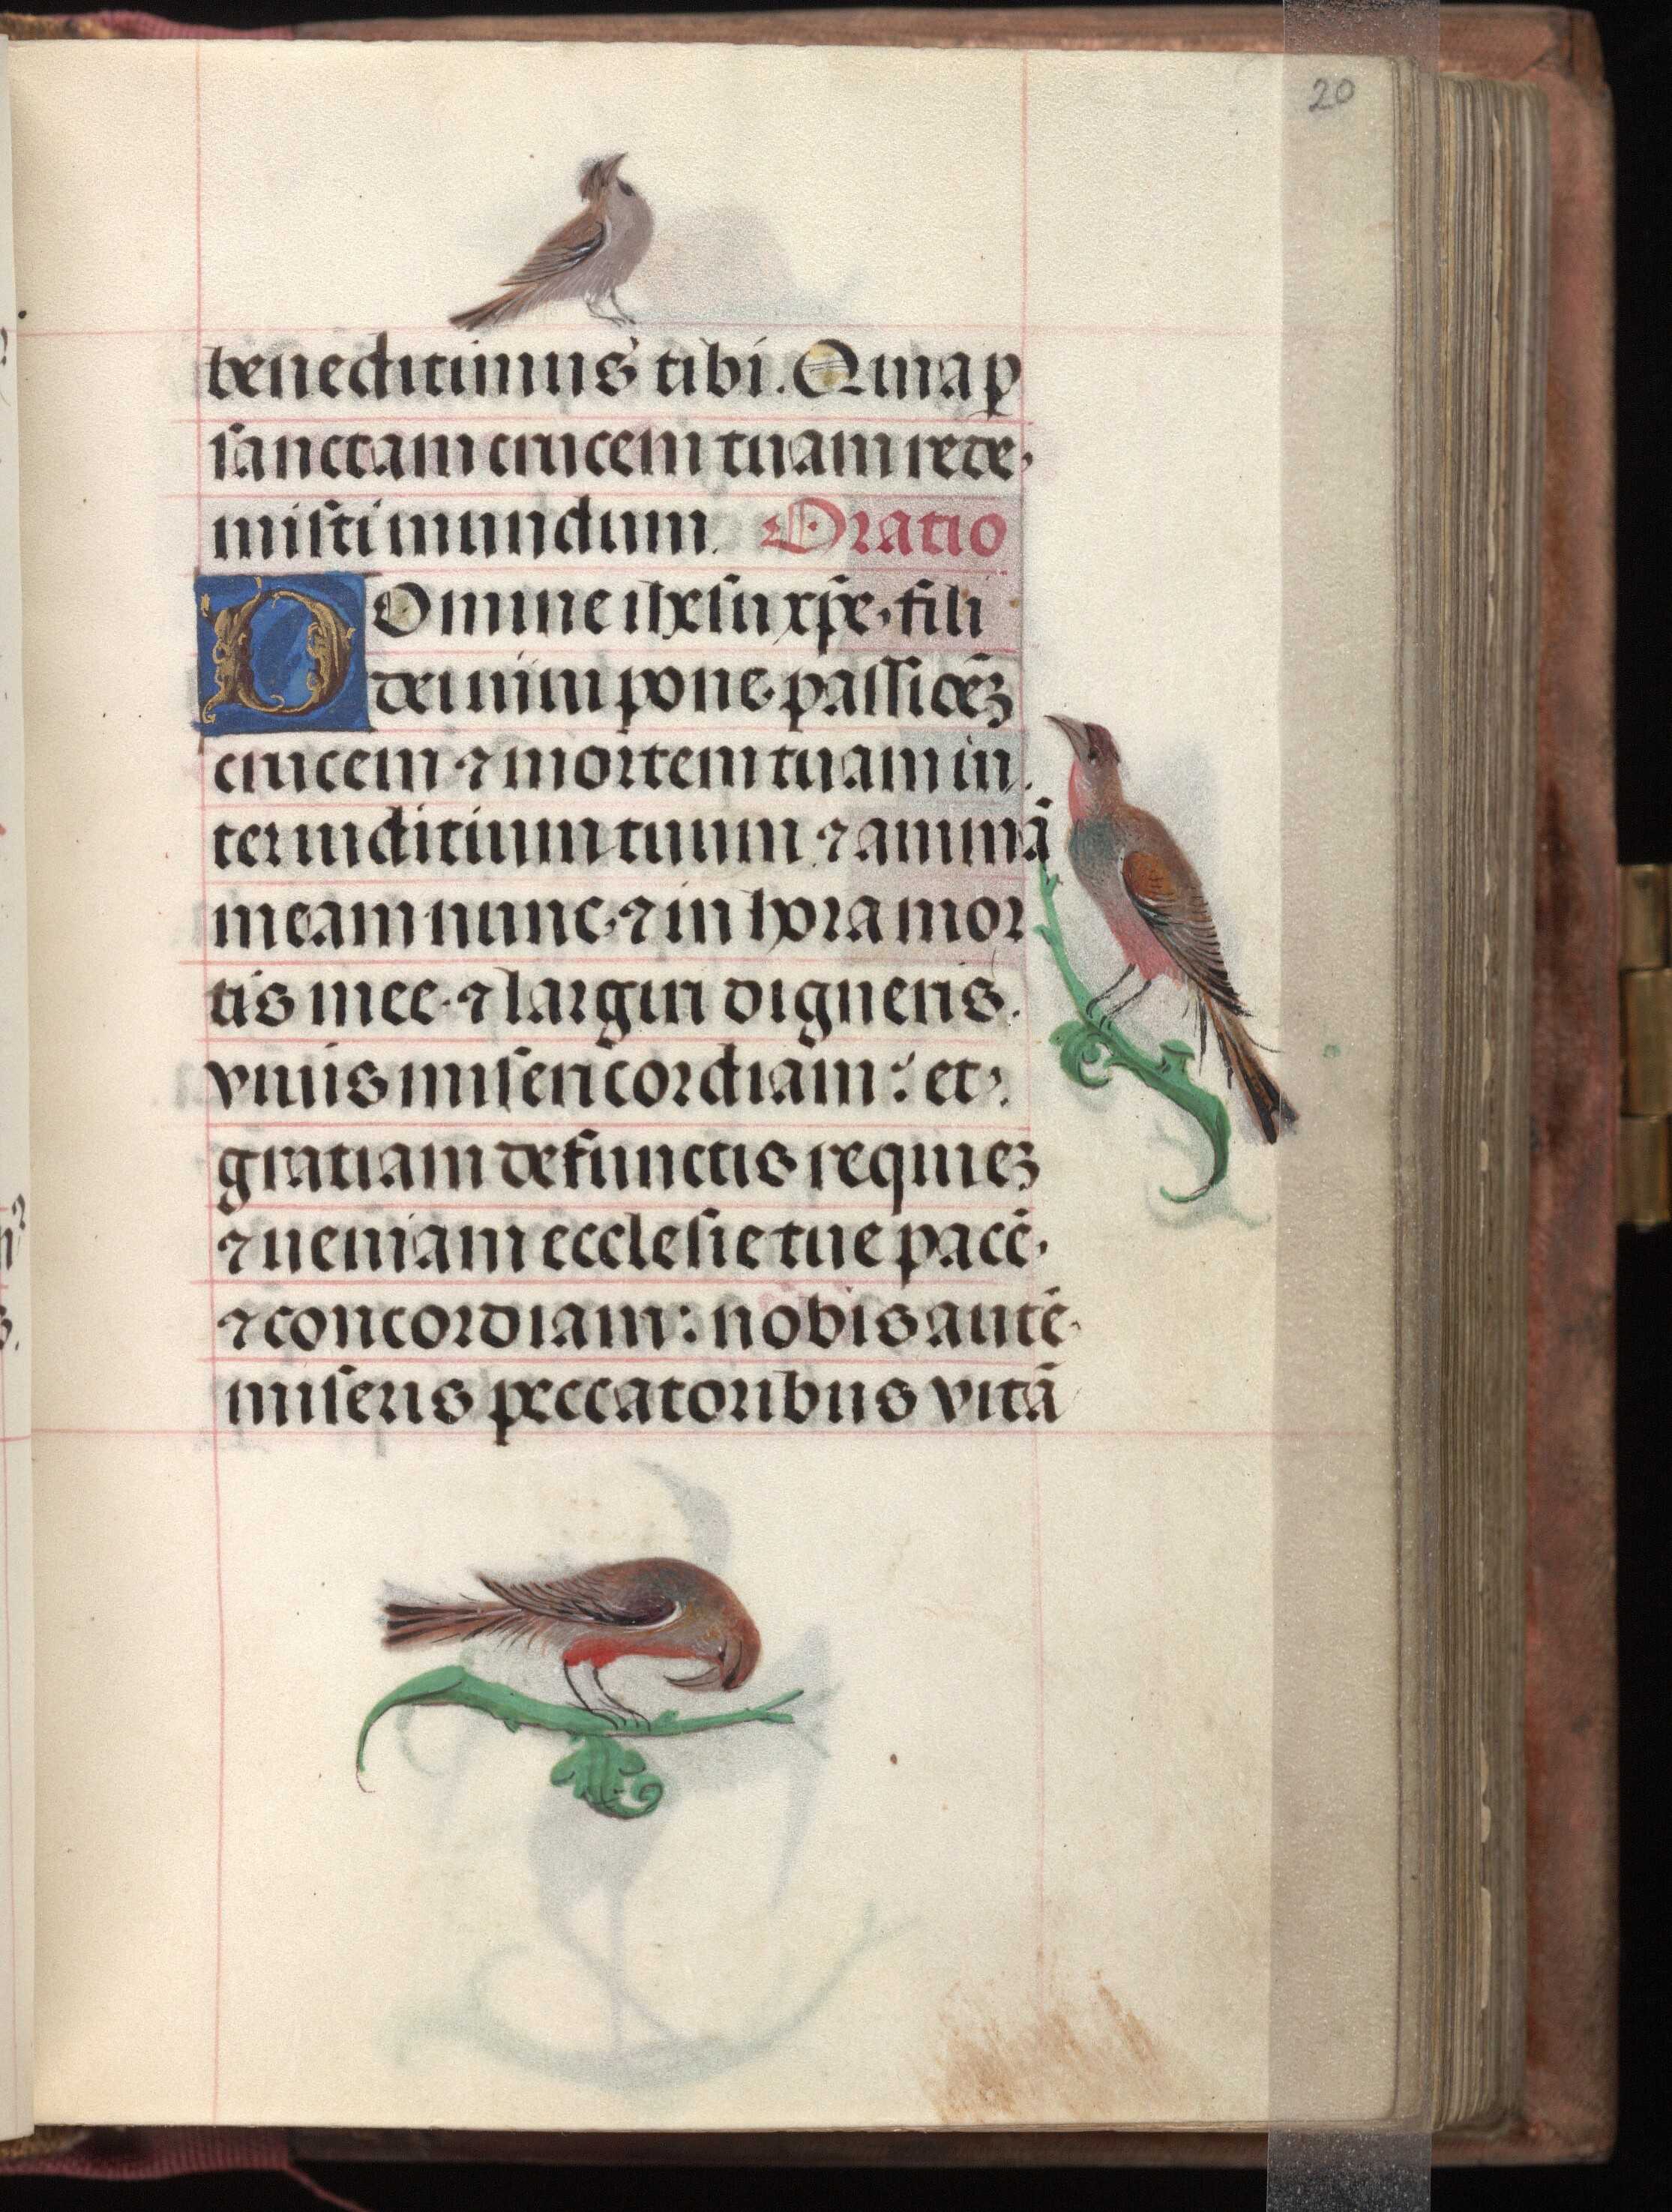 20
benedicimus tibi. Quia ꝑ
sanctam crucem tuam rede
misti mundum. Oratio
Domine ihesu xp̄e, fili
dei uiui pone, passiōeꝫ
crucem ⁊ mortem tuam in
ter iudicium tuum ⁊ animā
meam nunc, ⁊ in hora mor
tis mee, ⁊ largiri digneris.
viuis misericordiam: et,
gratiam defunctis requieꝫ
⁊ ueniam ecclesie tue pacē,
⁊ concordiam: nobis autē
miseris peccatoribus vitā